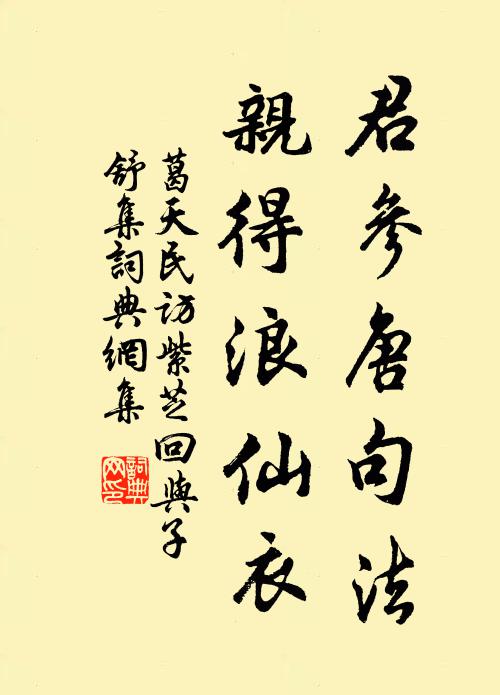 君參唐句法
親得浪仙衣
葛天民訪紫芝回與子
舒集詞典網集
詞典網印